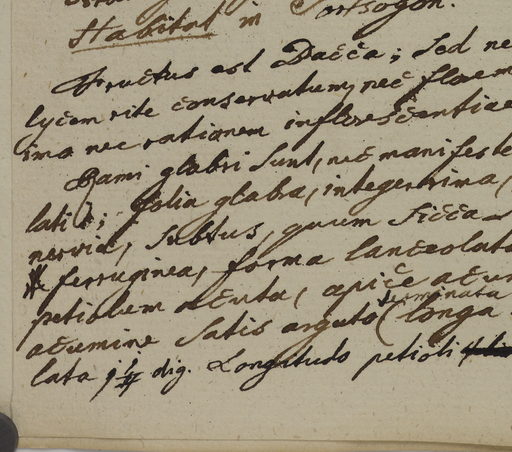 Habitat in Portsogon.
Fructus est Bacca; Sed ne
lycem rite conservatum, nec florem
imo nec rationem inflorescentiae
Rami glabri sunt, nec manifeste
lati; folia glabra, integerrima,
nervia, subtus, quum sicca
ferruginea, forma lanceolata
petiolum acuta, apice acum
acumine satis arguto terminata longa
lata 1½ dig. Longitudo petioli